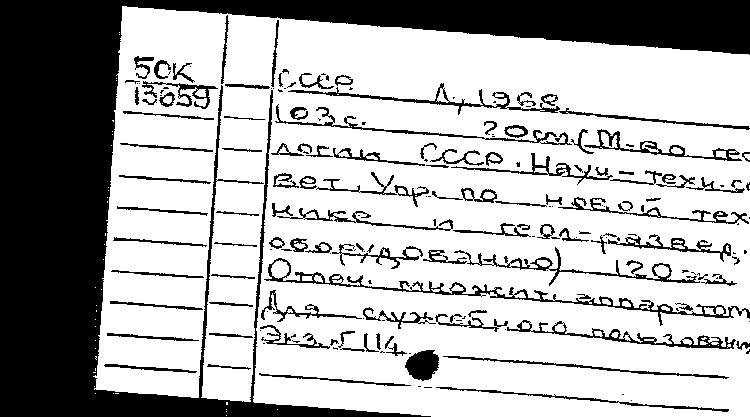 50К
13659
СССР Л, 1968.
103 с. 20 см. (М-во гео
логии СССР. Науч-техн. со
вет. Упр. по новой тех
нике и геол-развед.
оборудованию) 120 экз.
Отпеч. множит. аппаратом
Для служебного пользования
Экз. № 114